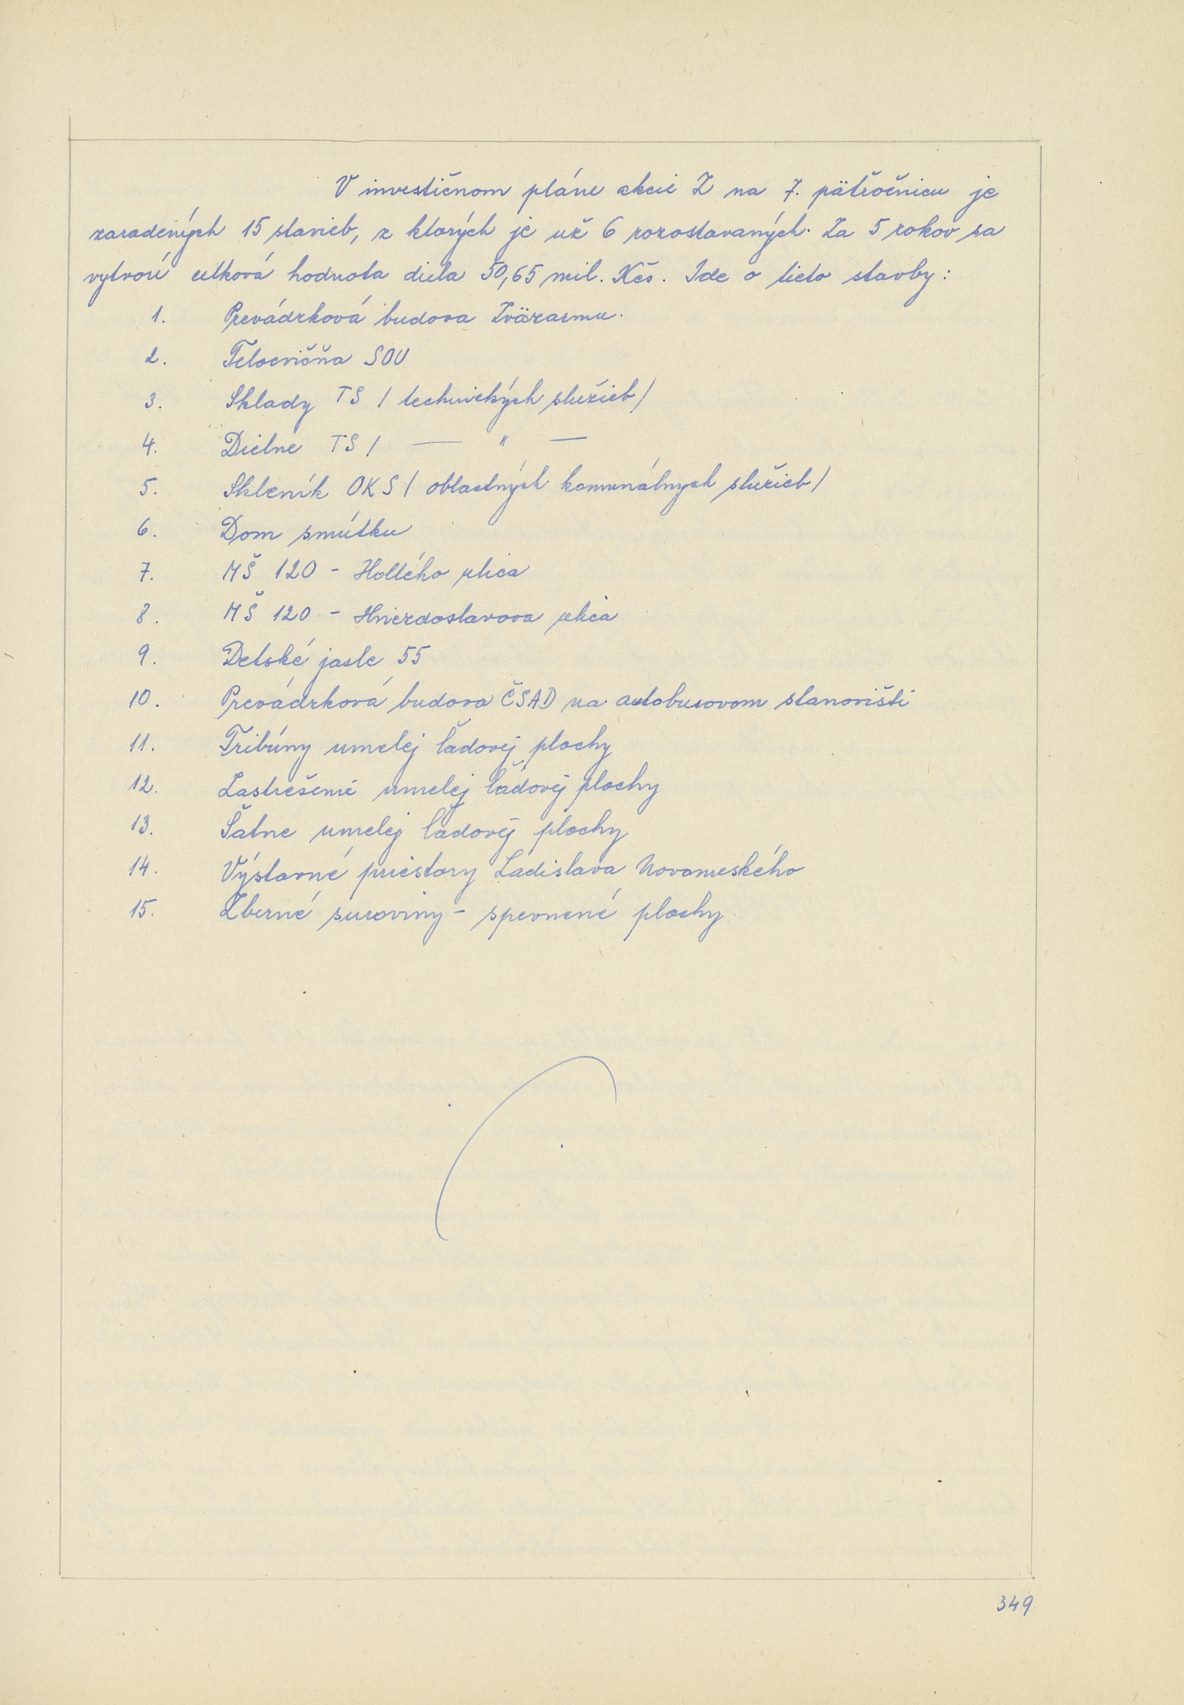 V investičnom pláne akcie Z na 7. päťročnicu je
zaradených 15 stavieb, z ktorých je už 6 rozostavaných. Za 5 rokov sa
vytvorí celková hodnota diela 50,65 mil. Kčs. Ide o tieto stavby:
1. Prevádzková budova Zväzarmu.
2. Telocvičňa SOU
3. Sklady TS / technických služieb/
4. Dielne TS / — " —
5. Skleník OKS / oblastných komunálnych služieb/
6. Dom smútku
7. MŠ 120 - Hollého ulica
8. MŠ 120 - Hviezdoslavova ulica
9. Detské jasle 55
10. Prevádzková budova ČSAD na autobusovom stanovišti
11. Tribúny umelej ľadovej plochy
12. Zastrešenie umelej ľadovej plochy
13. Šatne umelej ľadovej plochy
14. Výstavné priestory Ladislava Novomeského
15. Zberné suroviny - spevnené plochy
349